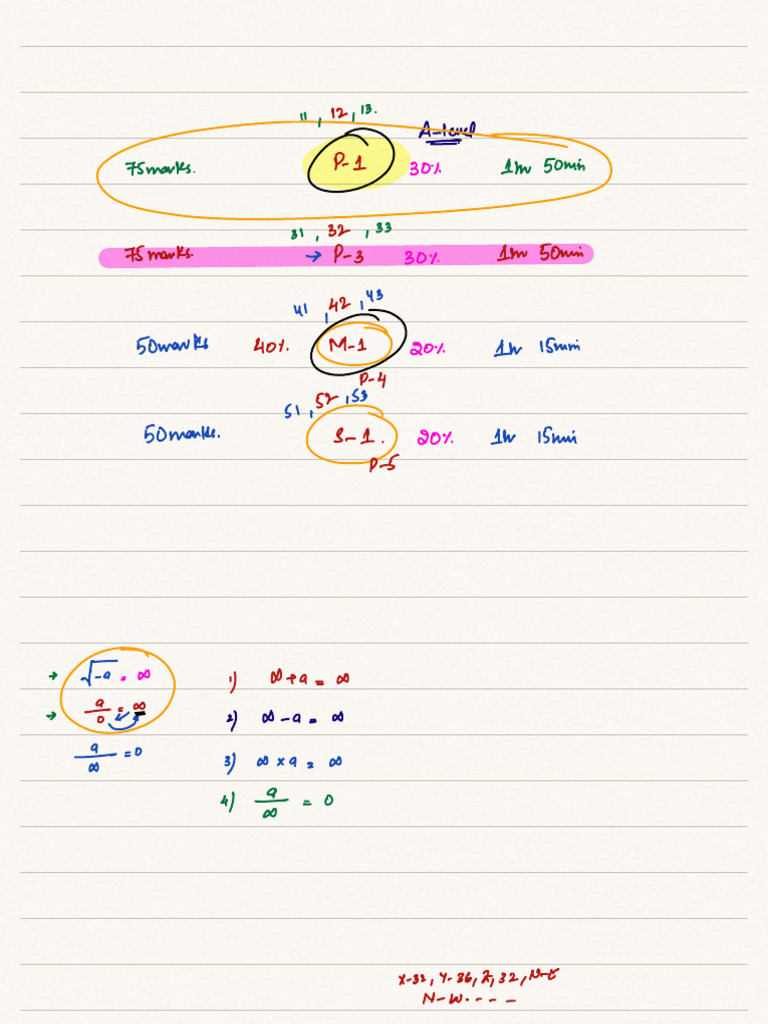 11, 12, 13.
A-level
75marks. P-1 30% 1hr 50min
31, 32, 33
75marks. → P-3 30% 1hr 50min
41, 42, 43
50marks 40% M-1 20% 1hr 15min
P-4
51, 52, 53
50marks. S-1. 20% 1hr 15min
P-5
→ √-a = ∞ 1) ∞ + a = ∞
→ a/0 = ∞ 2) ∞ - a = ∞
a/∞ = 0 3) ∞ × a = ∞
4) a/∞ = 0
X-32, Y-36, Z, 32,
N-W. - - - -